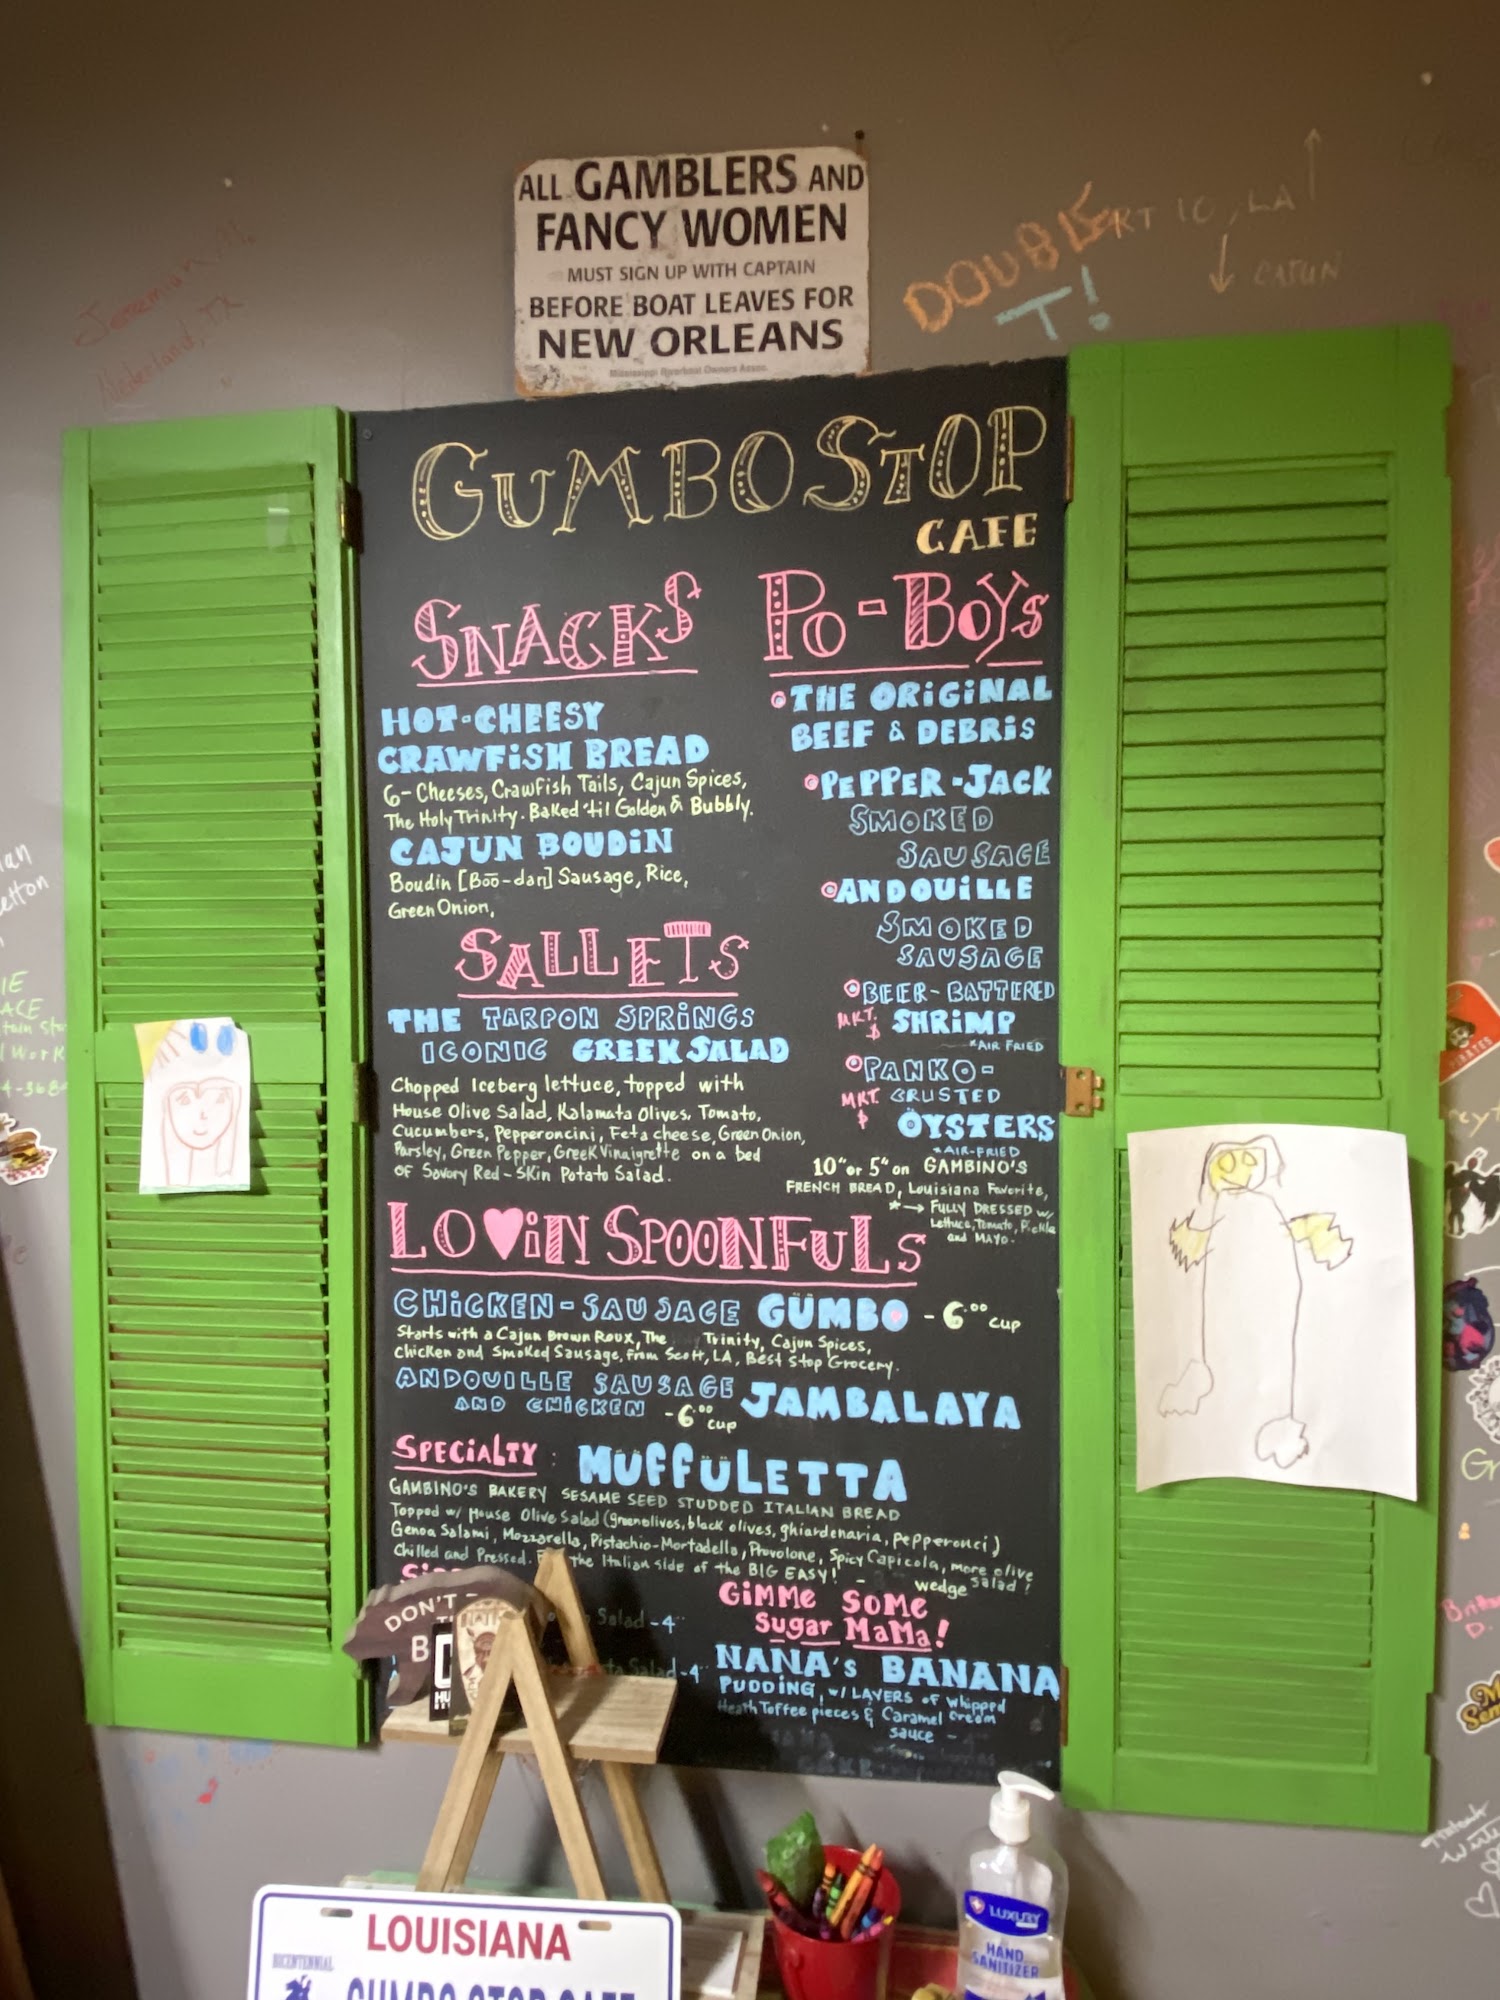 ALL GAMBLERS AND
FANCY WOMEN
MUST SIGN UP WITH CAPTAIN
BEFORE BOAT LEAVES FOR
NEW ORLEANS
Mississippi Riverboat Owners Assoc.
Jeremiah M.
Nederland, TX
DOUBLE
T!
RT 10, LA
CAJUN
GUMBO STOP
CAFE
SNACKS
HOT-CHEESY
CRAWFISH BREAD
6-Cheeses, Crawfish Tails, Cajun Spices,
The Holy Trinity. Baked 'til Golden & Bubbly.
CAJUN BOUDIN
Boudin [Boo-dan] Sausage, Rice,
Green Onion,
SALLETS
THE TARPON SPRINGS
ICONIC GREEK SALAD
Chopped Iceberg lettuce, topped with
House Olive Salad, Kalamata Olives, Tomato,
Cucumbers, Pepperoncini, Feta cheese, Green Onion,
Parsley, Green Pepper, Greek Vinaigrette on a bed
of Savory Red-Skin Potato Salad.
PO-BOYS
THE ORIGINAL
BEEF & DEBRIS
PEPPER-JACK
SMOKED
SAUSAGE
ANDOUILLE
SMOKED
SAUSAGE
BEER-BATTERED
MKT. $ SHRIMP
*AIR FRIED
PANKO-
MKT. $ CRUSTED
ÖYSTERS
*AIR-FRIED
10" or 5" on GAMBINO'S
FRENCH BREAD, Louisiana Favorite,
* → FULLY DRESSED w/
Lettuce, Tomato, Pickle
and MAYO.
LO♥iN SPOONFULS
CHICKEN-SAUSAGE GÜMBO - 6.00 cup
Starts with a Cajun Brown Roux, The Trinity, Cajun Spices,
Chicken and Smoked Sausage, from Scott, LA, Best Stop Grocery.
ANDOUILLE SAUSAGE
AND CHICKEN - 6.00 cup JAMBALAYA
SPECIALTY: MÜFFÜLETTA
GAMBINO'S BAKERY SESAME SEED STUDDED ITALIAN BREAD
Topped w/ House Olive Salad (green olives, black olives, ghiardenaria, pepperonci)
Genoa Salami, Mozzarella, Pistachio-Mortadella, Provolone, Spicy Capicola, more olive
Chilled and Pressed. the Italian side of the BIG EASY! - wedge salad!
Salad - 4
Salad - 4
GIMME SOME
Sugar MaMa!
NANA'S BANANA
PUDDING, w/ LAYERS OF Whipped
Heath Toffee pieces & Caramel Cream
sauce -
CAKE
DON'T
LOUISIANA
BICENTENNIAL
GUMBO STOP CAFE
LUXURY
HAND
SANITIZER
PIRATES